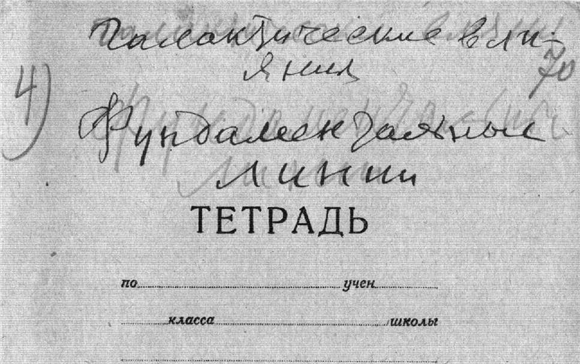 Галактические вли-
яния
70
4)
Фундаментальные
линии
ТЕТРАДЬ
по учен
класса школы